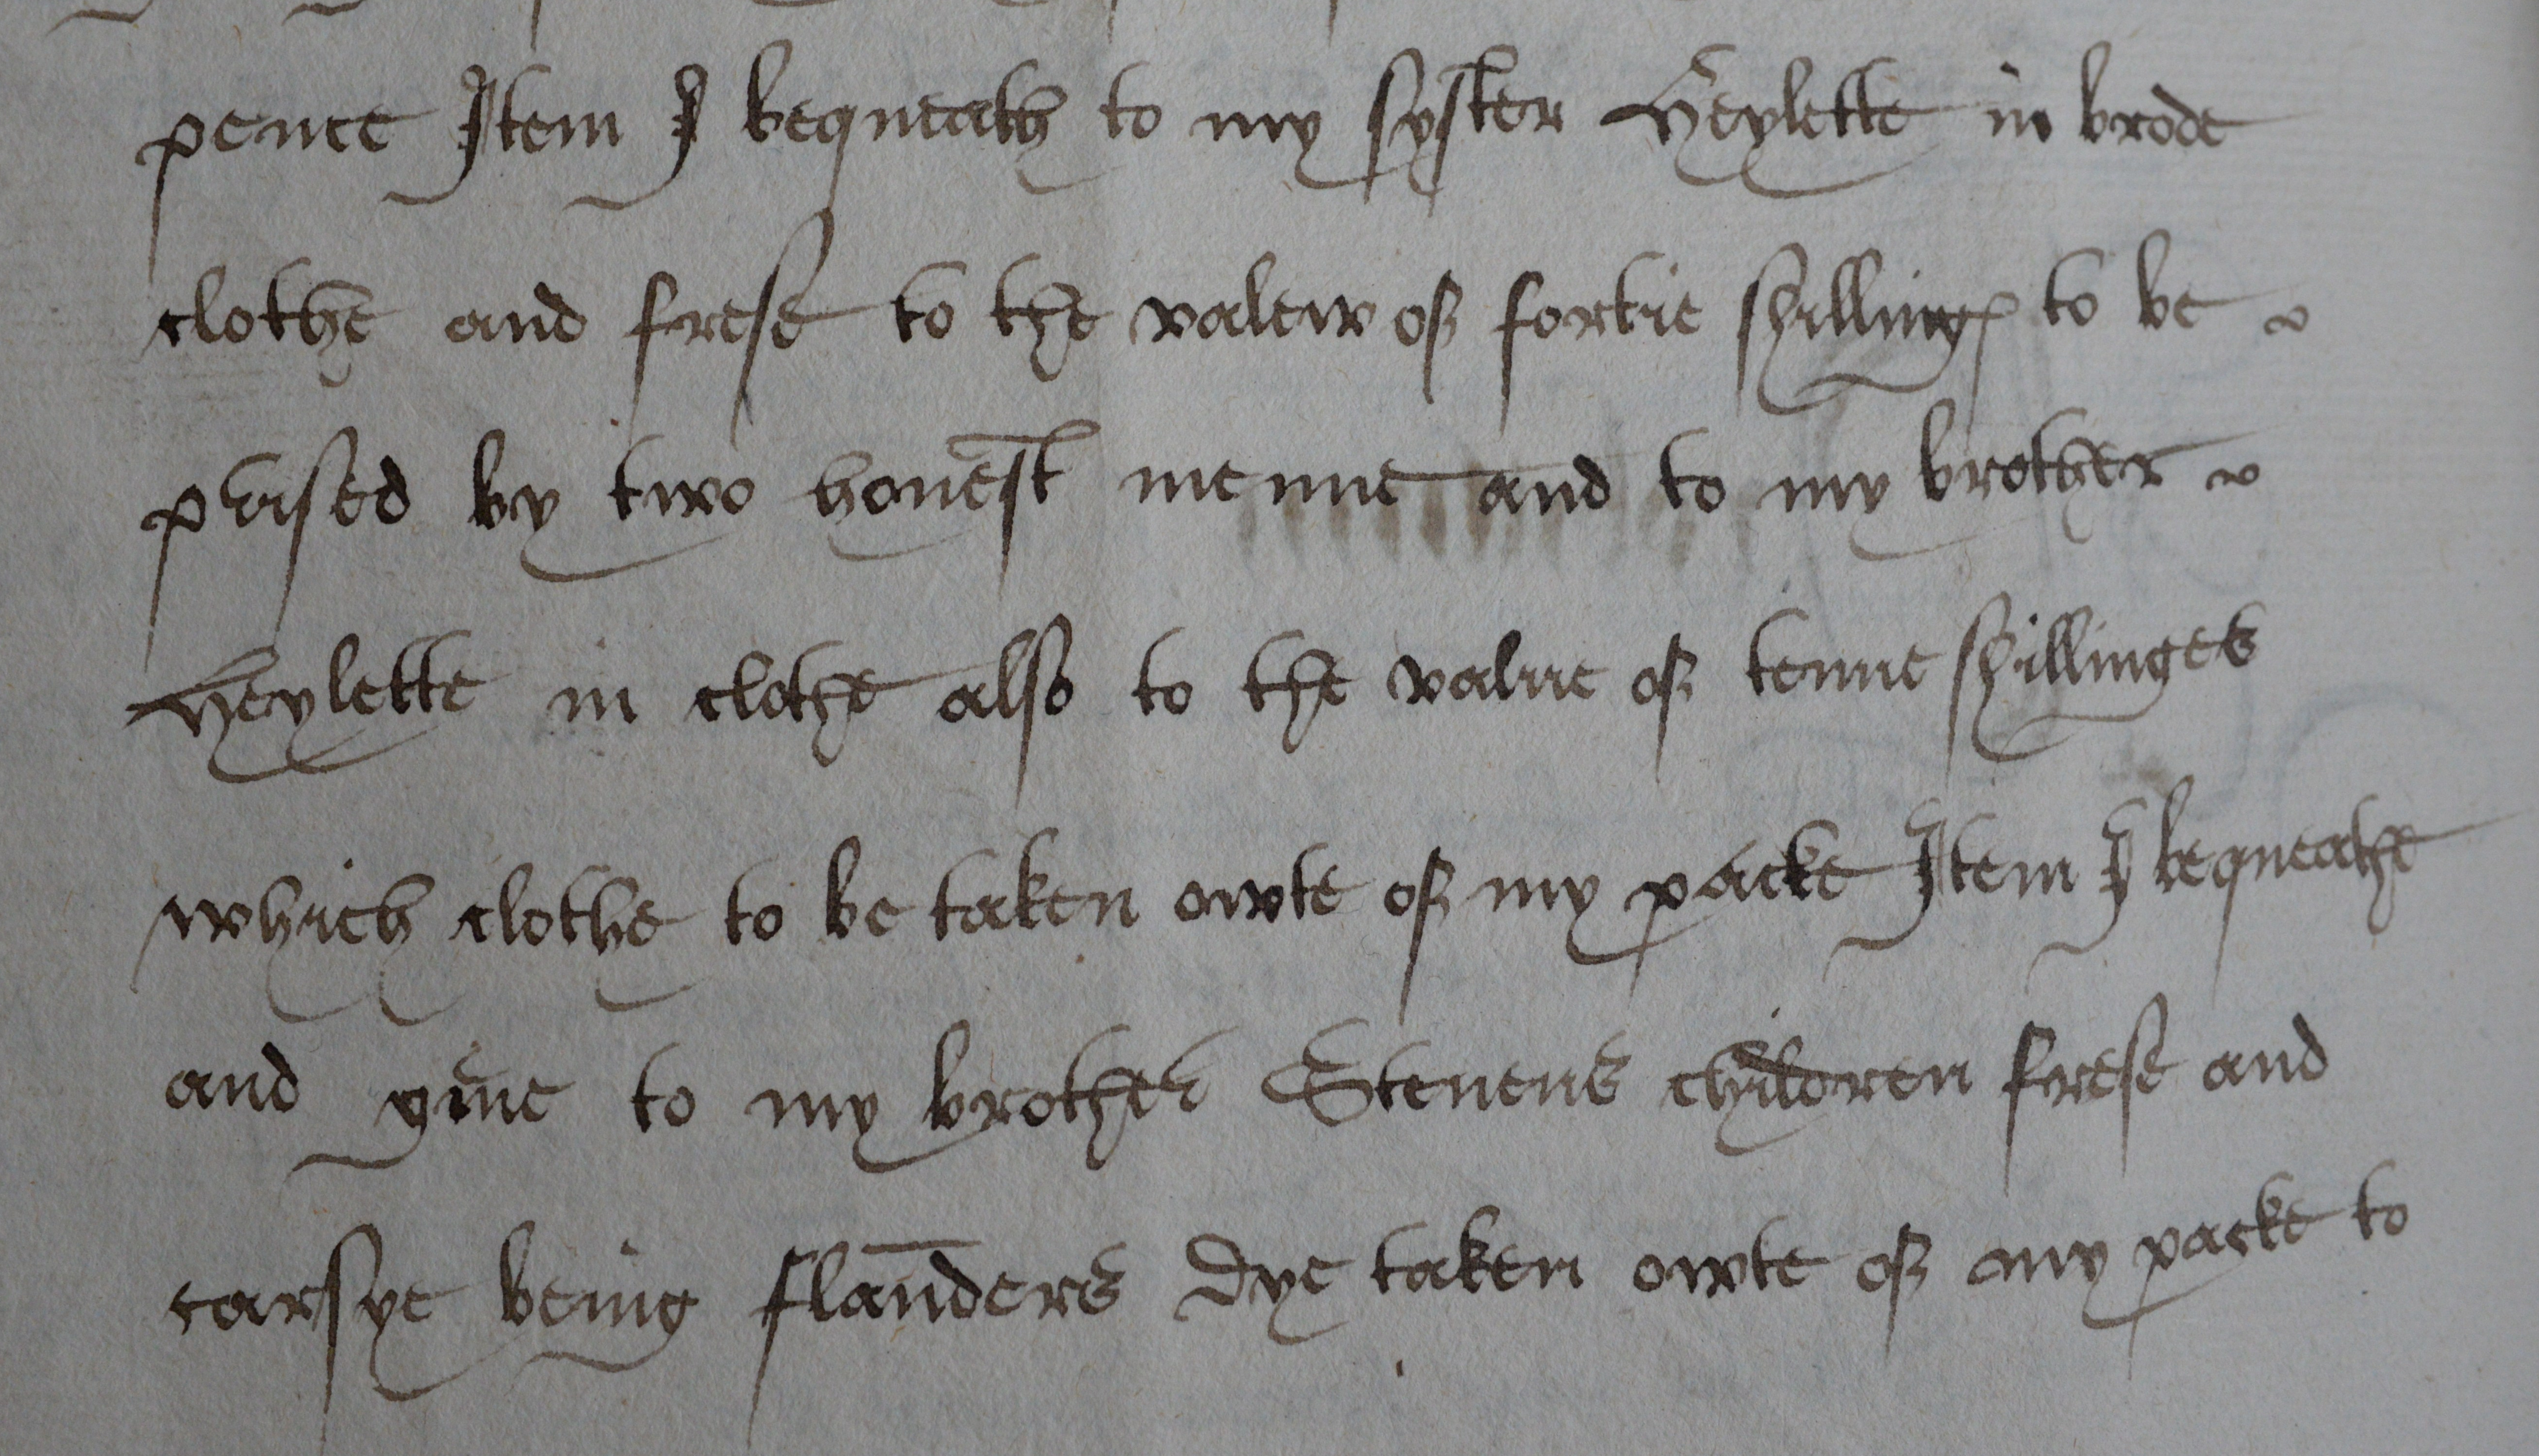 pence Item I bequeath to my syster Heylette in brode
clothe and frese to the valew of fortie shillings to be
prised by two honest menne and to my brother
Heylette in clothe also to the value of tenne shillinges
which clothe to be taken owte of my packe Item I bequeathe
and giue to my brother Steuens children frese and
carsye being flanders dye taken owte of my packe to